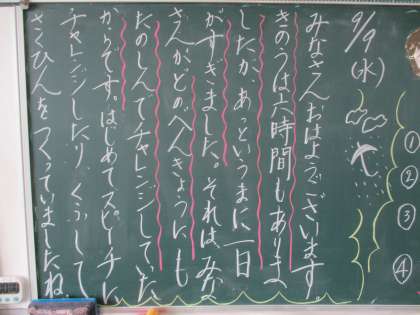 9/9(水)
みなさんおはようございます。
きのうは六時間もありま
したが、あっというまに一日
がすぎました。それは、みな
さんがどのべんきょうにも
たのしんでチャレンジしていた
からです。はじめてスピーチに
チャレンジしたり、くふうして
さくひんをつくっていましたね
①
②
③
④